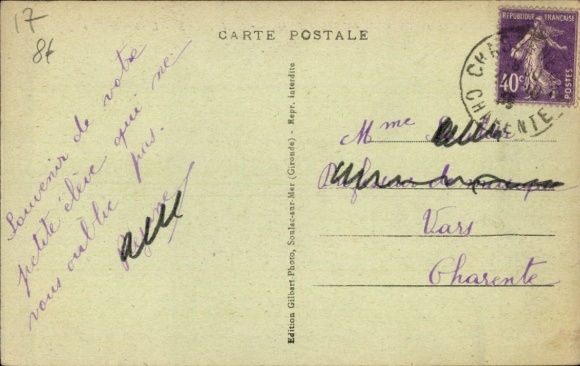 17
86
CARTE POSTALE
REPUBLIQUE FRANÇAISE
40c
POSTES
CHARENTE
Souvenir de votre
petite élève qui ne
vous oublie pas.
Edition Gilbert Photo, Soulac-sur-Mer (Gironde) - Repr. interdite
Mme
Vars
Charente